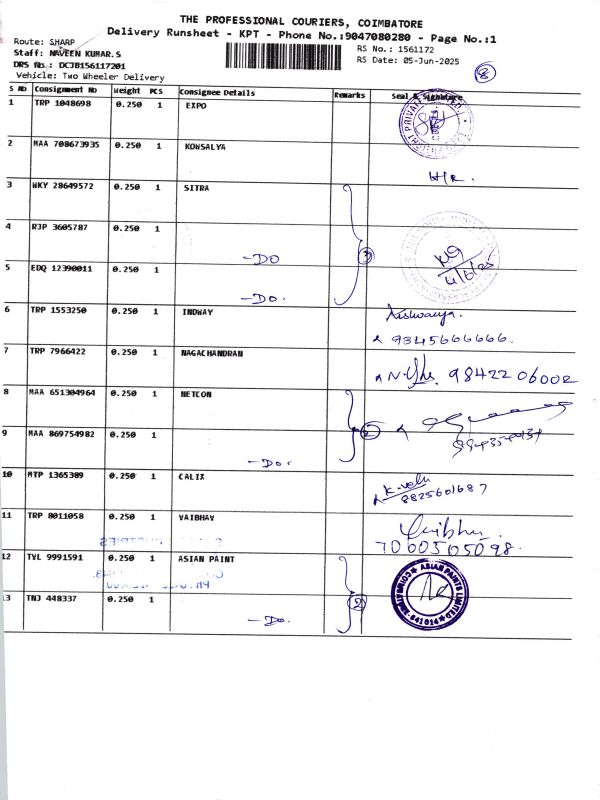 THE PROFESSIONAL COURIERS, COIMBATORE
Delivery Runsheet - KPT - Phone No.:9047080280 - Page No.:1
Route: SHARP
RS No.: 1561172
Staff: NAVEEN KUMAR.S
RS Date: 05-Jun-2025
DRS No.: DCJB156117201
Vehicle: Two Wheeler Delivery
8
S No Consignment No Weight PCS Consignee Details Remarks Seal & Signature
1 TRP 1048698 0.250 1 EXPO
2 MAA 708673935 0.250 1 KOWSALYA
H/R.
3 WKY 28649572 0.250 1 SITRA
4 RJP 3605787 0.250 1
-DO 3
5 EDQ 12390011 0.250 1
-Do.
6 TRP 1553250 0.250 1 INDWAY Aishwarya.
9345666666.
7 TRP 7966422 0.250 1 NAGACHANDRAN
98422 06002
8 MAA 651304964 0.250 1 NETCON
9 MAA 869754982 0.250 1 2
-Do.
10 MTP 1365389 0.250 1 CALIX K. velu
8825601687
11 TRP 8011058 0.250 1 VAIBHAV Vaibhav.
7060305098.
12 TVL 9991591 0.250 1 ASIAN PAINT
ASIAN PAINTS LIMITED
COIMBATORE-641014
13 TNJ 448337 0.250 1 2
-Do.